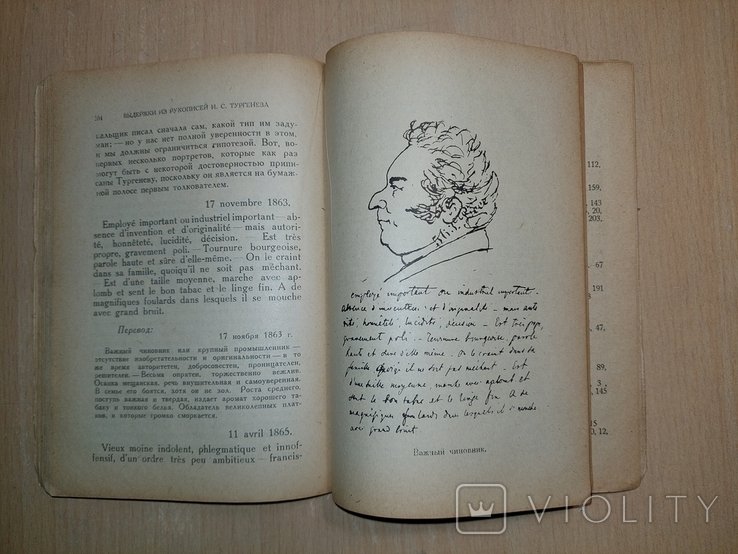 34 ВЫДЕРЖКИ ИЗ РУКОПИСЕЙ И. С. ТУРГЕНЕВА
сальщик писал сначала сам, какой тип им заду-
ман; — но у нас нет полной уверенности в этом,
мы должны ограничиться гипотезой. Вот, во-
первых несколько портретов, которые как раз
могут быть с некоторой достоверностью припи-
саны Тургеневу, поскольку он является на бумаж-
ной полосе первым толкователем.
17 novembre 1863.
Employé important ou industriel important — ab-
sence d'invention et d'originalité — mais autori-
té, honnêteté, lucidité, décision. — Est très
propre, gravement poli. — Tournure bourgeoise,
parole haute et sûre d'elle-même. — On le craint
dans sa famille, quoiqu'il ne soit pas mèchant.
— Est d'une taille moyenne, marche avec ap-
lomb et sent le bon tabac et le linge fin. A de
magnifiques foulards dans lesquels il se mouche
avec grand bruit.
Перевод:
17 ноября 1863 г.
Важный чиновник или крупный промышленник —
отсутствие изобретательности и оригинальности — в то
же время авторитет, добросовестен, проницателен,
решителен. — Весьма опрятен, торжественно вежлив.
Осанка мещанская, речь внушительная и самоуверенная.
В семье его боятся, хотя он не зол. Роста среднего,
поступь важная и твердая, издает аромат хорошего таба-
ку и тонкого белья. Обладатель великолепных плат-
ков, в которые громко сморкается.
11 avril 1865.
Vieux moine indolent, phlegmatique et innof-
fensif, d'un ordre très peu ambitieux — francis-
employé important ou industriel important —
absence d'invention et d'originalité — mais auto
rité, honnêteté, lucidité, décision — Est très propre,
gravement poli — Tournure bourgeoise, parole
haute et sûre d'elle même. On le craint dans sa
famille quoiqu'il ne soit pas méchant — Est
d'une taille moyenne marche avec aplomb et
sent le bon tabac et le linge fin. A de
magnifiques foulards dans lesquels il se mouche
avec grand bruit
Важный чиновник.
112,
159,
143
20,
203,
67
31,
47,
89,
3,
145
15
12,
VIOLITY